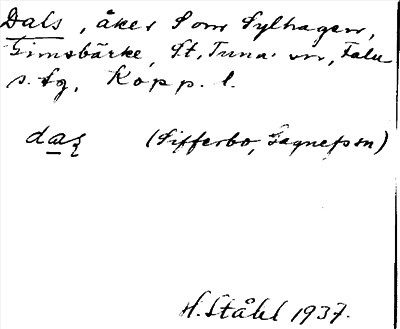 Dals, åker S om Sylhagen,
Gimsbärke, St. Tuna sn, Falu
s. fg, Kopp. l.
(Sifferbo, Gagnefs sn)
H. Ståhl 1937.